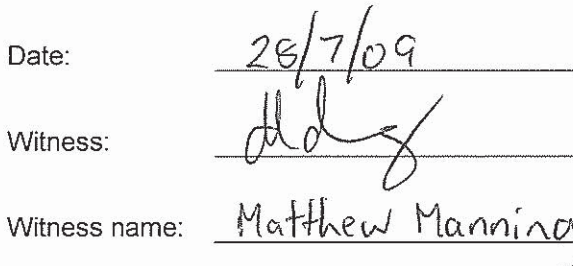 Date: 28/7/09
Witness:
Witness name: Matthew Manning